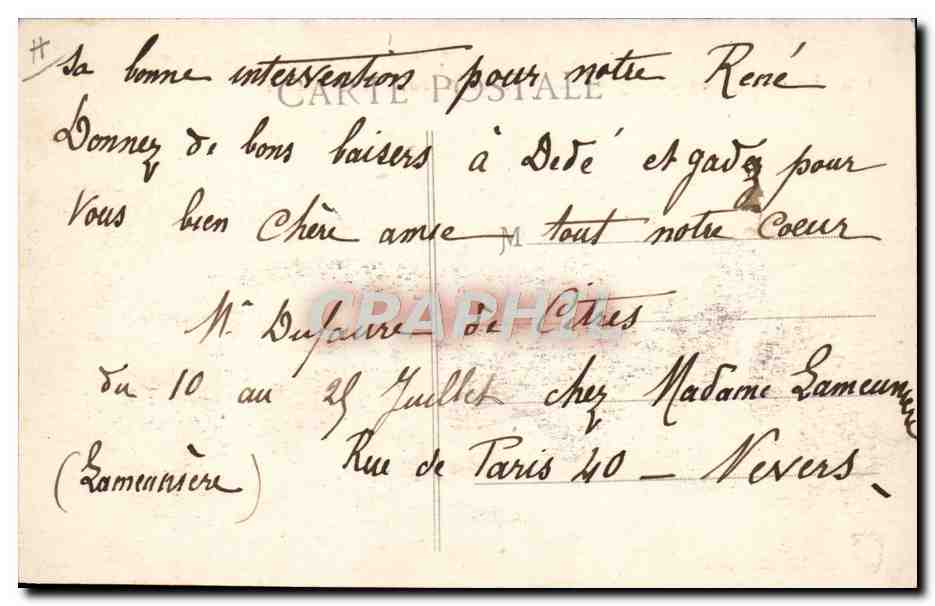 sa bonne intervention pour notre René
CARTE POSTALE
Donnez de bons baisers à Dedé et gadez pour
Vous bien chère amie tout notre coeur
M
CPAPHIL
M. Dufaure de Citres
du 10 au 25 Juillet chez Madame Lameunière
(Lameunière) Rue de Paris 40 — Nevers